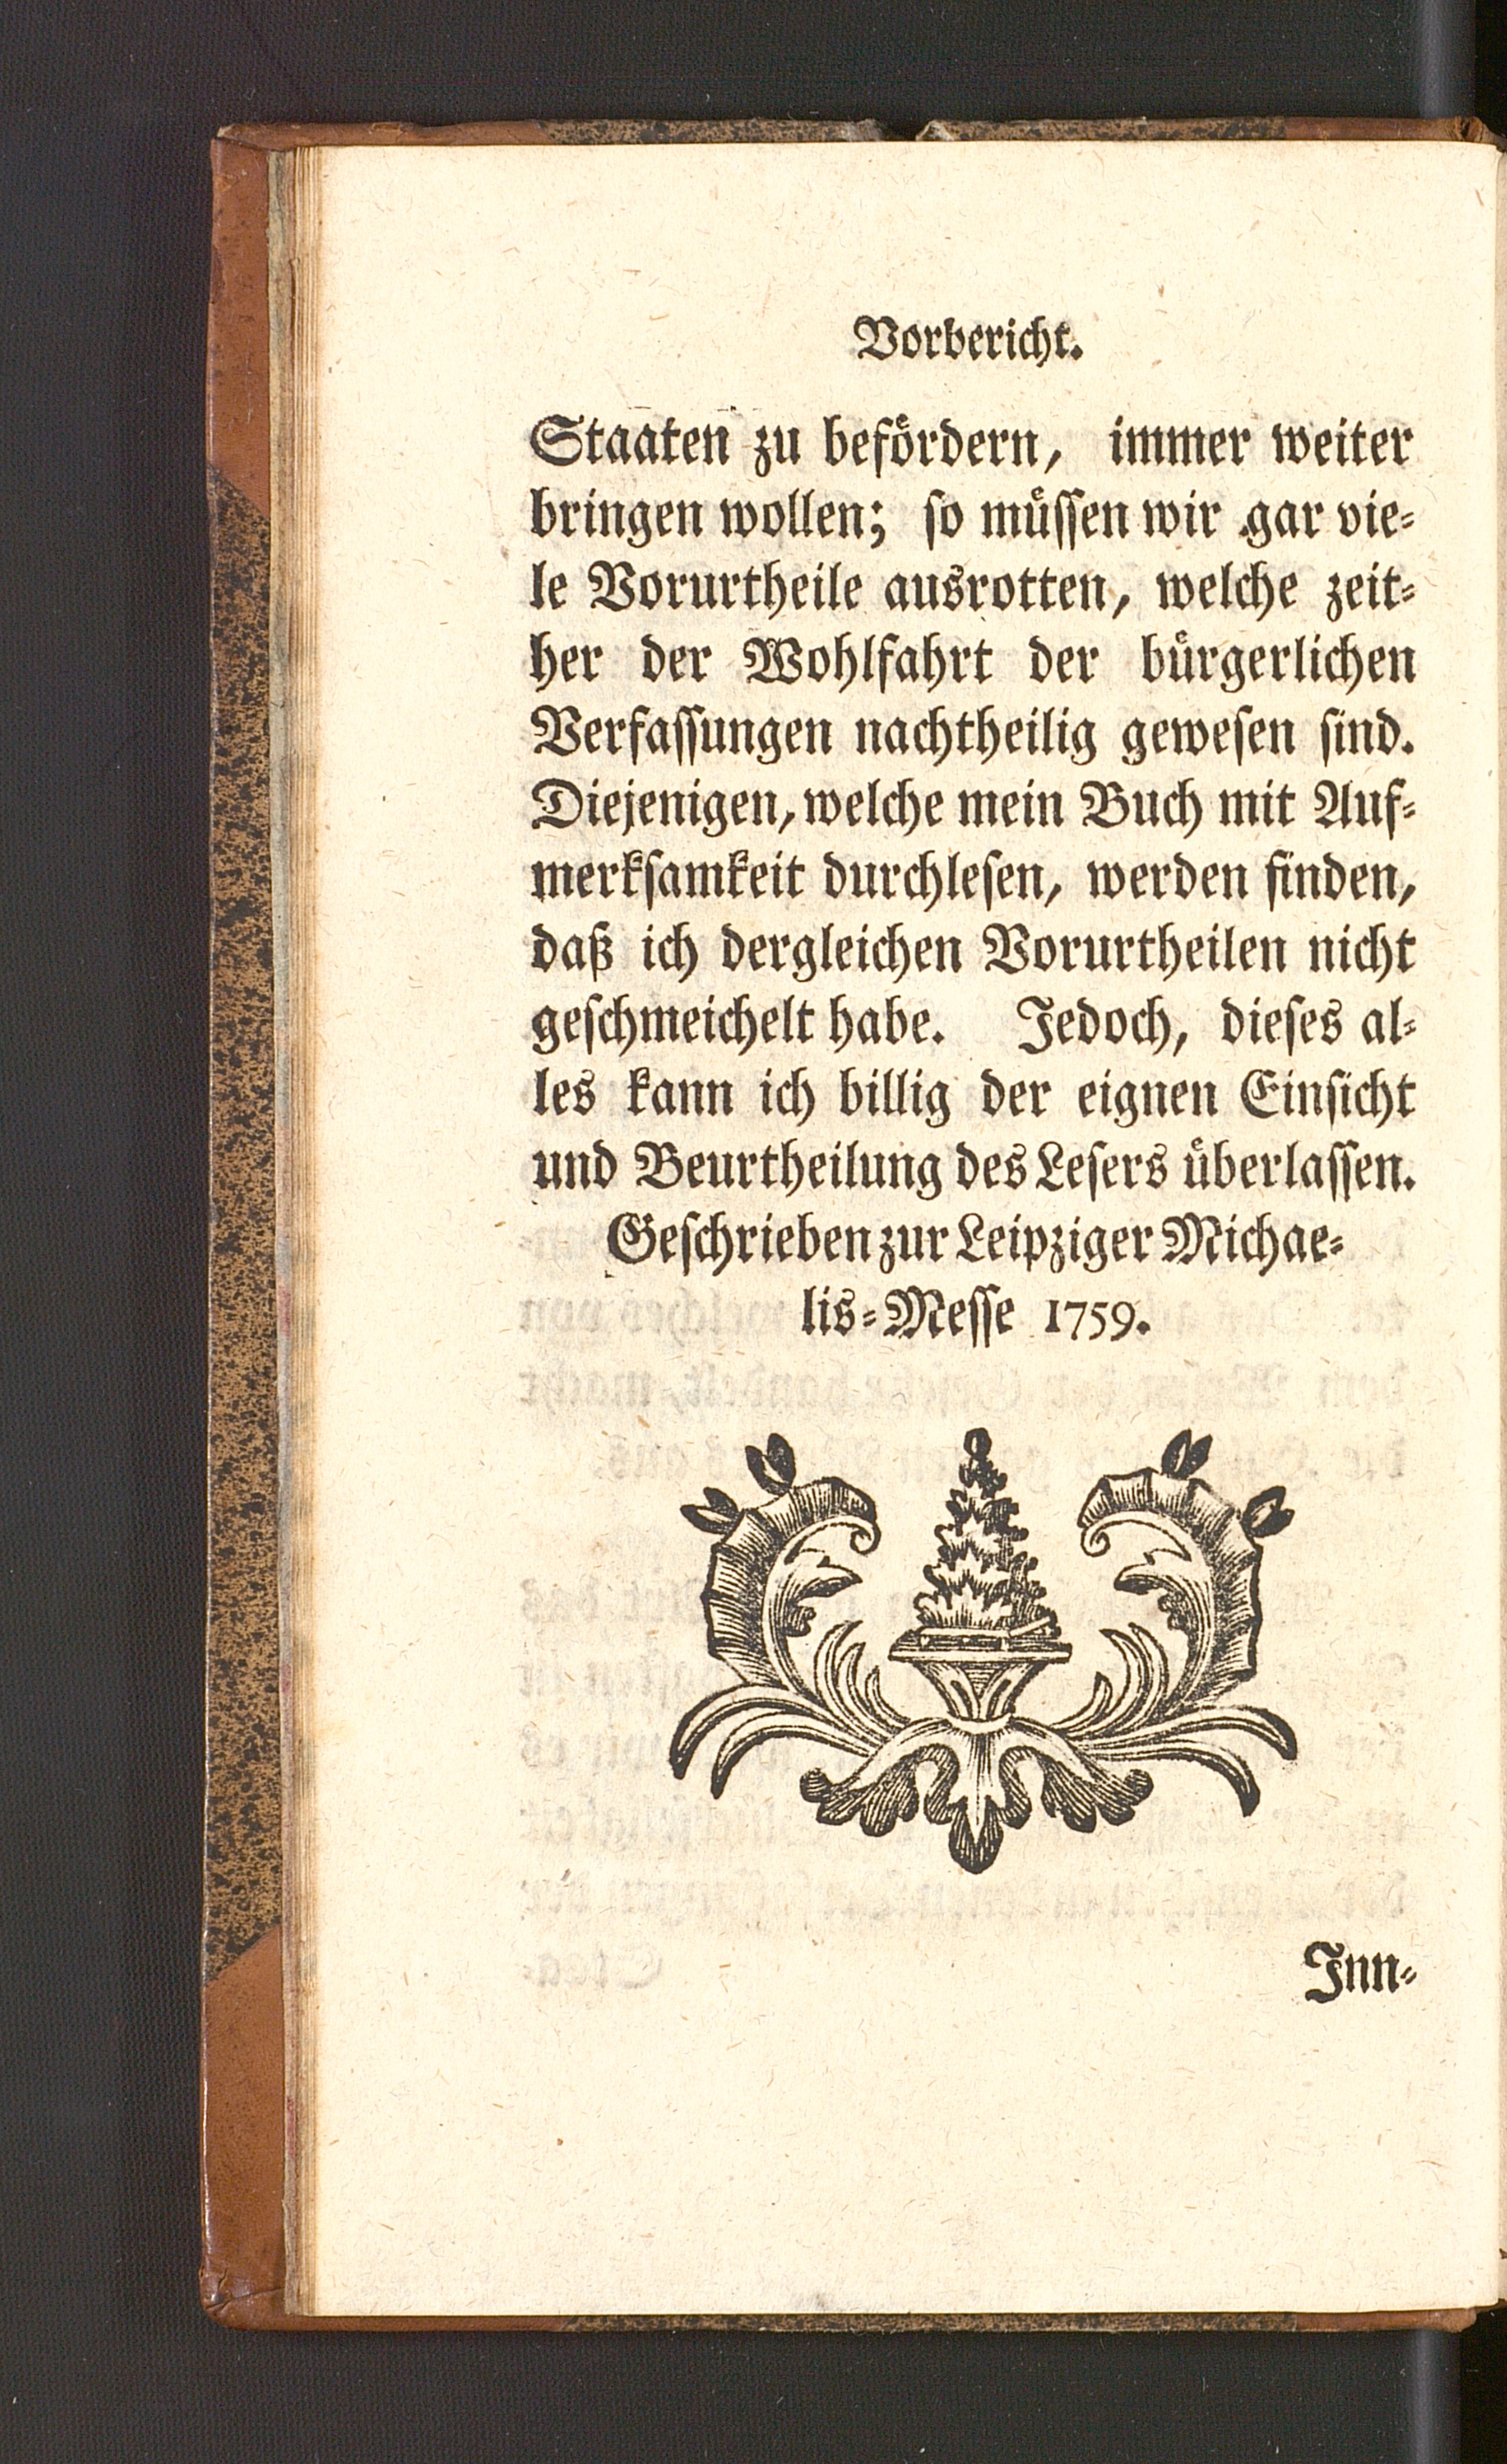 Vorbericht.
Staaten zu befördern, immer weiter
bringen wollen; so müssen wir gar vie-
le Vorurtheile ausrotten, welche zeit-
her der Wohlfahrt der bürgerlichen
Verfassungen nachtheilig gewesen sind.
Diejenigen, welche mein Buch mit Auf-
merksamkeit durchlesen, werden finden,
daß ich dergleichen Vorurtheilen nicht
geschmeichelt habe. Jedoch, dieses al-
les kann ich billig der eignen Einsicht
und Beurtheilung des Lesers überlassen.
Geschrieben zur Leipziger Michae-
lis-Messe 1759.
Inn-